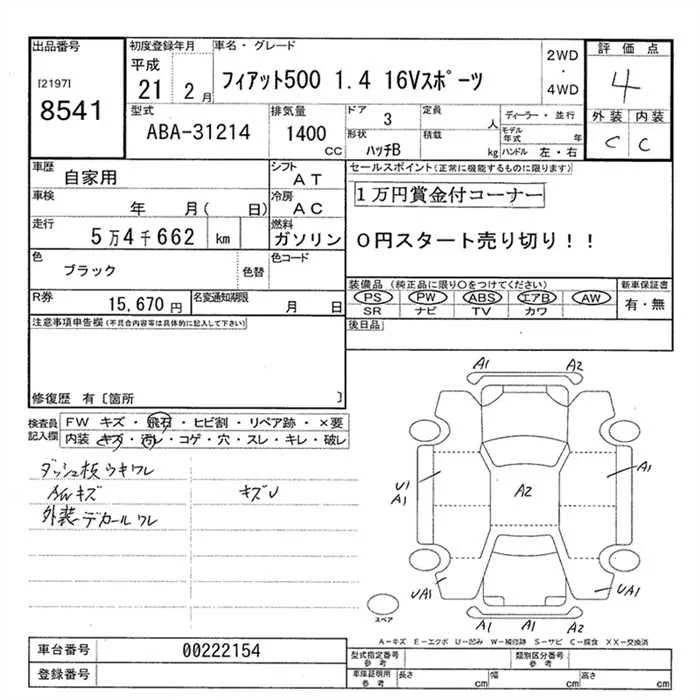 出品番号
[2197]
8541
初度登録年月
平成
21 2月
車名・グレード
フィアット500 1.4 16Vスポーツ
2WD
・
4WD
評価点
4
外装 内装
C C
型式
ABA-31214
排気量
1400
CC
ドア
3
定員
人
形状
ハッチB
積載
kg
ディーラー・並行
モデル年式 年
ハンドル 左・右
車歴
自家用
シフト
AT
車検
年 月( 日)
冷房
AC
走行
5万4千662 km
燃料
ガソリン
色
ブラック
色替
色コード
R券
15,670円
名変通知期限
月 日
セールスポイント(正常に機能するものに限ります)
1万円賞金付コーナー
0円スタート売り切り!!
装備品(純正品に限り○をつけてください)
PS PW ABS エアB AW
SR ナビ TV カワ
新車保証書
有・無
後日品
注意事項申告欄(不具合内容等は具体的に記入して下さい)
修復歴 有〔箇所 〕
検査員記入欄
FW キズ・飛石・ヒビ割・リペア跡・×要
内装 キズ・汚レ・コゲ・穴・スレ・キレ・破レ
ダッシュ板ウキワレ
AWキズ
キズU
外装デカールワレ
A1 A2
U1
A1
A2
A1
UA1
UA1
A1 A1 A2
スペア
A-キズ E-エクボ U-凹み W-補修跡 S-サビ C-腐食 XX-交換済
車台番号
00222154
登録番号
型式指定番号
参考
類別区分番号
参考
車庫証明用
参考
長さ cm
幅 cm
高さ cm